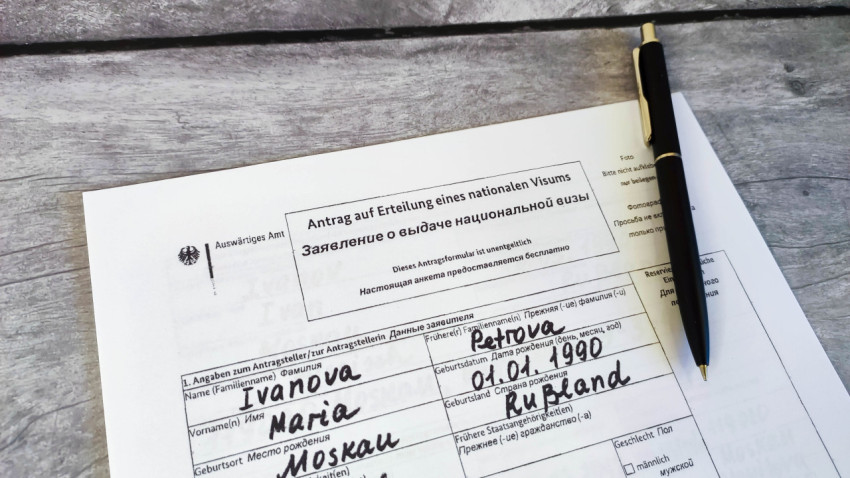 Auswärtiges Amt
Antrag auf Erteilung eines nationalen Visums
Заявление о выдаче национальной визы
Dieses Antragsformular ist unentgeltlich
Настоящая анкета предоставляется бесплатно
Foto
Bitte nicht
nur
Просьба не
только
1. Angaben zum Antragsteller/zur Antragstellerin Данные заявителя
Name (Familienname) Фамилия
Ivanova
Frühere(r) Familienname(n) Прежняя (-ие) фамилия (-и)
Petrova
Vorname(n) Имя
Maria
Geburtsdatum Дата рождения (день, месяц, год)
01.01.1990
Geburtsort Место рождения
Moskau
Geburtsland Страна рождения
Rußland
Frühere Staatsangehörigkeit(en)
Прежнее (-ие) гражданство (-а)
Geschlecht Пол
männlich
мужской